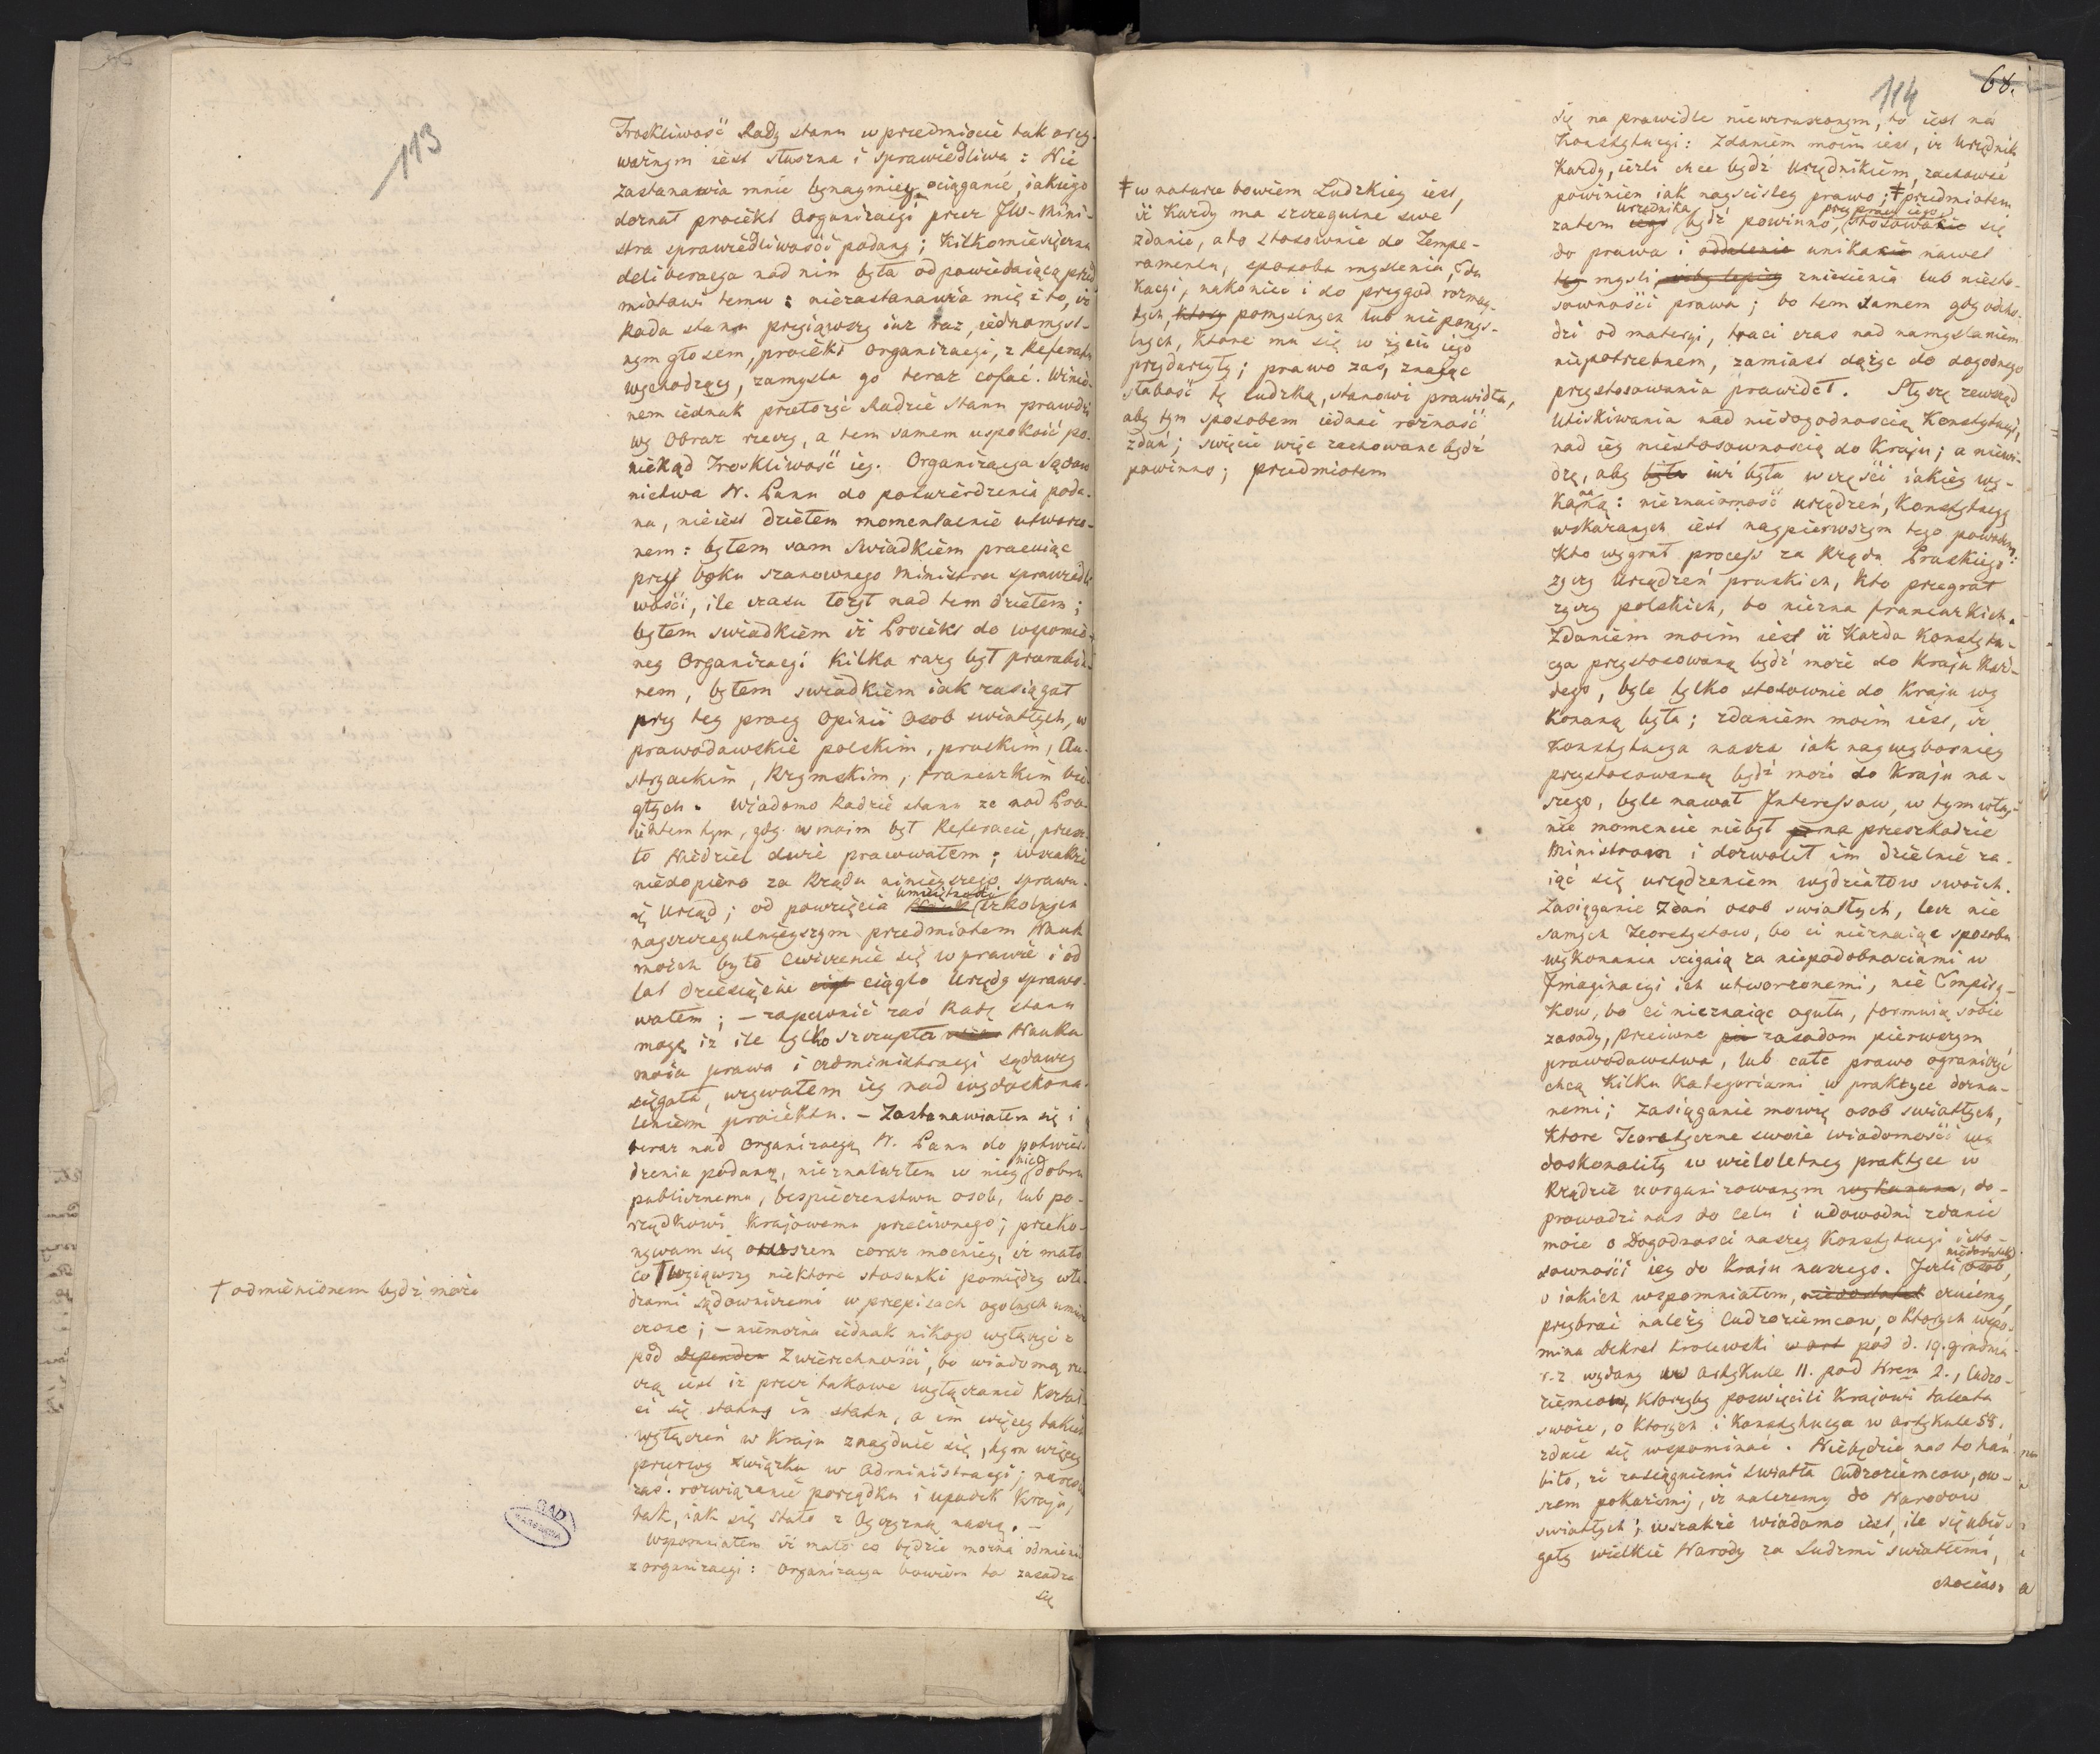 113
Troskliwość Rady stanu w przedmiocie tak arcy-
ważnym iest słuszna i sprawiedliwa: Nie
zastanawia mnie bynaymiey ociąganie, iakiego
doznał proiekt Organizacyi przez JW. Mini-
stra sprawiedliwości podany; Kilkomiesięczna
deliberacya nad nim była odpowiedaiącą przed
miotowi temu: niezastanawia mię i to, iż
Rada stanu przyiąwszy iuż raz, iednomysl-
nym głosem, proiekt Organizacyi, z Referatu
wychodzący, zamysla go teraz cofać. Winie-
nem iednak przełożyć Radzie Stanu prawdzi
wy Obraz rzeczy, a tem samem uspokoić po-
niekąd Troskliwość iey. Organizacya Sądow
nictwa N. Panu do potwierdzenia poda-
na, nieiest dziełem momentalnie utworzo-
nem: byłem sam swiadkiem pracuiąc
przy boku szanownego Ministra sprawiedli
wości, ile czasu łożył nad tem dziełem;
byłem swiadkiem iż Proiekt do wspomnio-
ney Organizacyi kilka razy był przerabia-
nem, byłem swiadkiem iak zasiągał
przy tey pracy Opinii Osob swiatłych, w
prawodawskie polskim, pruskim, Au-
stryackim, Rzymskim, francuzkim bie
głych. Wiadomo Radzie stanu ze nad Pro-
iektem tym, gdy w moim był Referacie, przez
to Niedziel dwie pracowałem; wszakże
niedopiero za Rządu ninieyszego sprawu-
ię Urząd; od powzięcia umieiętności szkolnych
nayszczegulnieyszym przedmiotem Nauk
moich było cwiczenie się w prawie i od
lat dziesięciu ciągło Urzędy sprawo-
wałem; – zapewnić zaś Radę stanu
mogę iż ile tylko szczupła Nauka
moia prawa i administracyi sądowey
sięgała, używałem iey nad wydoskona-
leniem proiektu. – Zastanawiałem się i
teraz nad Organizacyą N. Panu do potwier-
dzenia podaną, nieznalazłem w niey nic dobru
publicznemu, bespieczenstwu osob, lub po-
rządkowi Krajowemu przeciwnego; przeko-
nywam się owszem coraz mocniey, iż mało
co † wziąwszy niektore stosunki pomiędzy wła-
dzami sądowniczemi w przepisach ogolnych umie
czone; – niemożna iednak nikogo wyłączyć z
pod Dependen Zwierzchności, bo wiadomą rze-
czą iest iż przez takowe wyłączanie Kształ
ci się status in statu, a im więcey takich
wyłączeń w Kraju znayduie się, tym więcey
przerwy związku w Administracyi; naresz
zaś rozwiązanie porządku i upadek Kraju,
tak, iak się stało z Oyczyzną naszą. –
Wspomniałem iż mało co będzie można odmienić
z organizacyi: Organizacya bowiem ta zasadza
się
† odmienionem bydź może
114
68.
‡ w naturze bowiem Ludzkiey iest,
iż Każdy ma szczegulne swe
zdanie, a to stosownie do Tempe-
ramentu, sposobu myslenia, Edu
kacyi, nakoniec i do przygod rozmay-
tych, ktory pomyslnych lub niepomys-
lnych, ktore mu się w życiu iego
przydarzyły; prawo zaś, znaiąc
słabość tę Ludzką, stanowi prawidła,
aby tym sposobem iednać rożność
zdań; swięcie więc zachowane bydź
powinno; przedmiotem
się na prawidle niewzruszonym, to iest na
Konstytucyi: Zdaniem moim iest, iż Urzędnik
Każdy, ieżli chce bydź Urzędnikiem, zachować
powinien iak nayscisley prawo; ‡ przedmiotem
zatem iego urzędnika bydź powinno, przy pracy iego stosowanie się
do prawa i oddalenie unikanie nawet
tey mysli zniesienia lub niesto-
sowności prawa; bo tem samem gdy odcho-
dzi od materyi, traci czas nad namyslaniem
niepotrzebnem, zamiast dążyć do dogodnego
przystosowania prawideł. Słyszę zewsząd
Utiskiwania nad niedogodnoscią Konstytucyi,
nad iey niestosownoscią do Kraju; a niewi-
dzę, aby była iuż była w częsci iakiey wy-
konaną: nieznaiomość urządzeń, Konstytucyą
wskazanych iest naypierwszym tego powodem:
Kto wygrał process za Rządu Pruskiego
życzy Urządzeń pruskich, kto przegrał
życzy polskich, bo niezna francuzkich.
Zdaniem moim iest iż Każda Konstytu-
cya przystosowaną bydź może do Kraju Każ-
dego, byle tylko stosownie do Kraju wy
konaną była; zdaniem moim iest, iż
Konstytucya nasza iak naywyborniey
przystosowaną bydź może do Kraju na-
szego, byle nawał Interessow, w tym właś-
nie momencie niebył na przeszkodzie
Ministrom i dozwolił im dzielnie za-
iąć się urządzeniem wydziałow swoich.
Zasięganie Zdań osob swiatłych, lecz nie
samych Teoretystow, bo ci nieznaiąc sposobu
wykonania scigaią za niepodobnosciami w
Imaginacyi ich utworzonemi, nie Empiry-
kow, bo ci nieznaiąc ogułu, formuią sobie
zasady, przeciwne zasadom pierwszym
prawodawstwa, lub całe prawo ograniczyć
chcą Kilku Kategoriami w praktyce dozna-
nemi; zasiąganie mowię osob swiatłych,
Ktore Teoretyczne swoie wiadomości wy
doskonaliły w wieloletniey praktyce w
Rządzie uorganizowanym wykonana, do-
prowadzi nas do celu i udowodni zdanie
moie o Dogodnosci naszey Konstytucyi i sto-
sowności iey do Kraju naszego. Jeżli niedostatek osob,
o iakich wspomniałem, niedostatek czuiemy,
przybrać należy Cudzoziemcow, o ktorych wspo-
mina dekret Krolewski w art pod d. 19. grudnia
r. z. wydany w Artykule 11. pod Nrem 2., Cudzo-
ziemcow, Ktorzyby poswięcili Krajowi talenta
swoie, o ktorych i Konstytucya w artykule 58.
zdaie się wspominać. Niebędzie nas to hań
biło, że zasiągniemi swiatła Cudzoziemcow, ow-
szem pokażemy, iż należemy do Narodow
swiatłych; wszakże wiadomo iest, ile się ubie-
gały wielkie Narody za Ludzmi swiatłemi,
chociaż